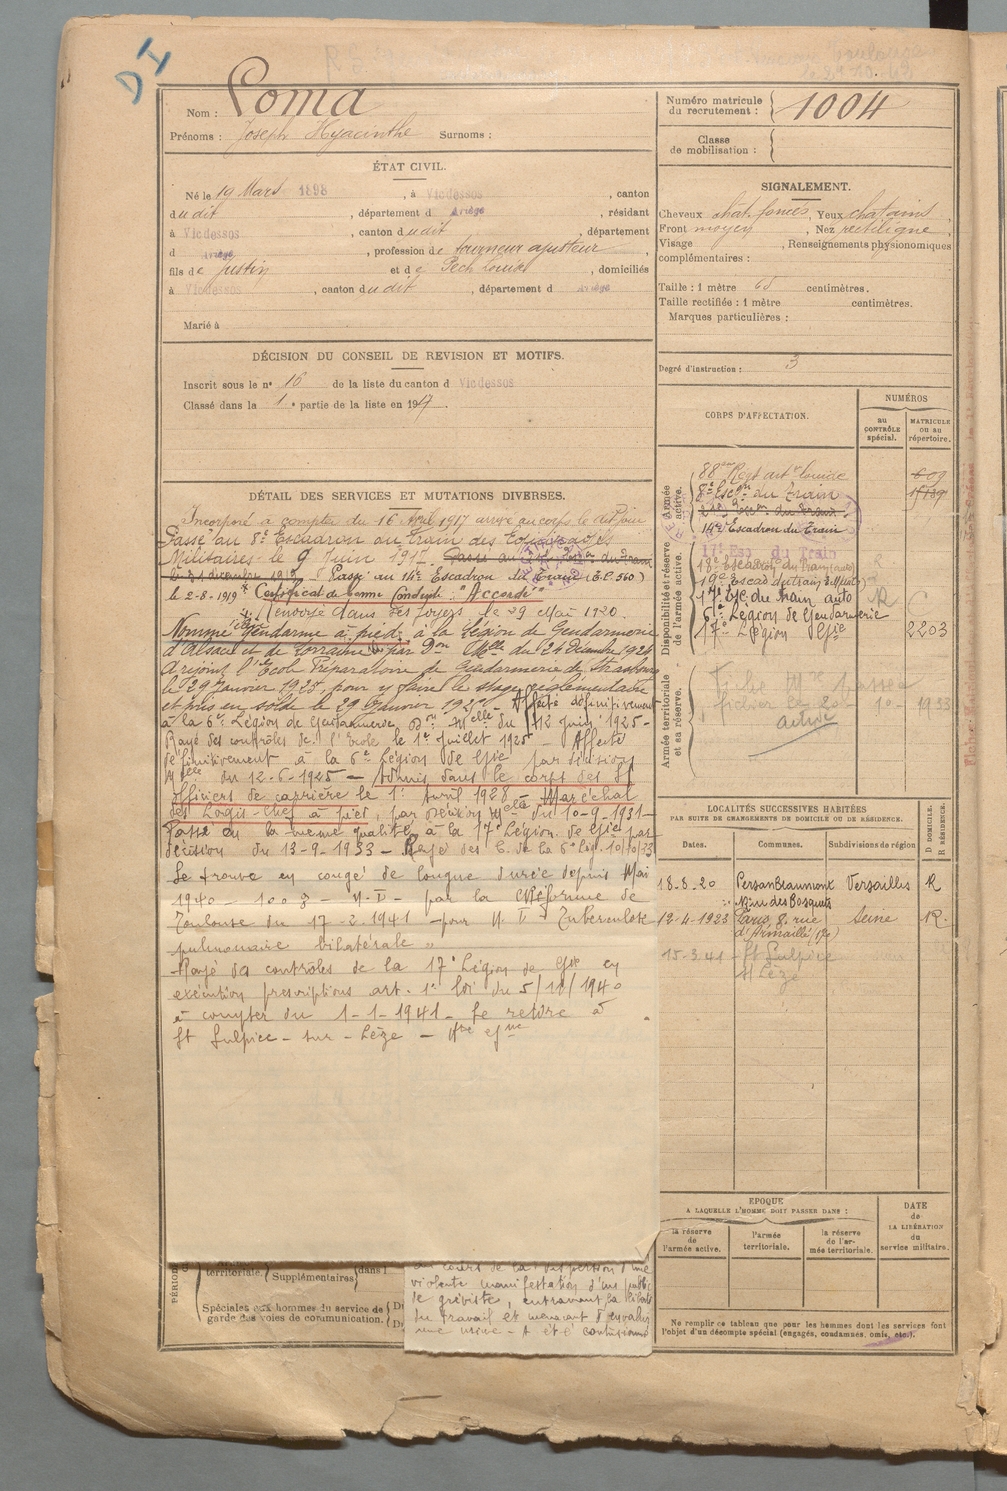 Nom : Loma
Prénoms : Joseph Hyacinthe Surnoms :
Numéro matricule du recrutement : 1004
Classe de mobilisation :
ÉTAT CIVIL.
Né le 19 Mars 1898, à Vicdessos, canton
dudit, département d Ariège, résidant
à Vicdessos, canton dudit, département
d Ariège, profession de tourneur ajusteur,
fils de Justin et de Pech Louise, domiciliés
à Vicdessos, canton dudit, département d Ariège
Marié à
SIGNALEMENT.
Cheveux chat. foncés, Yeux chatains,
Front moyen, Nez rectiligne,
Visage , Renseignements physionomiques
complémentaires :
Taille : 1 mètre 65 centimètres.
Taille rectifiée : 1 mètre centimètres.
Marques particulières :
Degré d'instruction : 3
DÉCISION DU CONSEIL DE REVISION ET MOTIFS.
Inscrit sous le n° 16 de la liste du canton d Vicdessos
Classé dans la 1e partie de la liste en 1917.
CORPS D'AFFECTATION.
NUMÉROS
AU CONTRÔLE spécial.
MATRICULE OU AU répertoire.
Armée active.
88me Regt artie lourde 609
8e Escon du Train
14e Escadron du Train
Disponibilité et réserve de l'armée active.
17e Esc du Train
18e Escadron du Train (auto) R
19e Escad du train
17e Esc du train auto R
6e Légion de Gendarmerie
17e Légion Gie 2203
Armée territoriale et sa réserve.
Fiche Mre passée
fichier le 20 - 10 - 1933
active
DÉTAIL DES SERVICES ET MUTATIONS DIVERSES.
Incorporé à compter du 16 Avril 1917 arrivé au corps le dit jour
Passé au 8e Escadron du Train des Equipages
Militaires le 9 Juin 1917. Passé au Escon du Train
le 31 décembre 1917 Passé au 14e Escadron du Train (E.C. 560)
le 2-8-1919 Certificat de bonne Conduite : "Accordé"
Renvoyé dans ses foyers le 29 Mai 1920.
Nommé élève Gendarme à pied à la légion de Gendarmerie
d'Alsace et de Lorraine par Don Melle du 24 Décembre 1924
A rejoint l'Ecole Préparatoire de Gendarmerie de Strasbourg
le 29 Janvier 1925 pour y faire le stage réglementaire
et pris en solde le 29 Janvier 1925. - Affecté définitivement
à la 6e Légion de Gendarmerie, Don Melle du 12 Juin 1925 -
Rayé des contrôles de l'Ecole le 1er Juillet 1925 - Affecté
définitivement à la 6e Légion de Gie par décision
Melle du 12-6-1925 - Admis dans le corps des S/
Officiers de carrière le 1er Avril 1928 - Maréchal
des Logis-Chef à pied, par décision Melle du 10-9-1931 -
Passé en la même qualité à la 17e Légion de Gie par
décision du 13-9-1933 - Rayé des C. de la 6e Lég. 10/10/33
Se trouve en congé de longue durée depuis Mai
1940 - par la C Réforme de
Toulouse du 17-2-1941 - pour Tuberculose
pulmonaire bilatérale "
Rayé des contrôles de la 17e Légion de Gie en
exécution prescriptions art. 1er loi du 5/10/1940
à compter du 1-1-1941. Se retire à
St Sulpice - sur - Lèze -
LOCALITÉS SUCCESSIVES HABITÉES
PAR SUITE DE CHANGEMENTS DE DOMICILE OU DE RÉSIDENCE.
Dates. Communes. Subdivisions de région
D DOMICILE. R RÉSIDENCE.
18-8-20 Persan Beaumont Versailles R
des Bosquets
12-4-1923 Paris 8. rue Seine R.
d'Armaillé (17e)
15-3-41 - St Sulpice
s/ Lèze
EPOQUE
A LAQUELLE L'HOMME DOIT PASSER DANS :
la réserve de l'armée active.
l'armée territoriale.
la réserve de l'armée territoriale.
DATE de LA LIBÉRATION du service militaire.
Ne remplir ce tableau que pour les hommes dont les services font
l'objet d'un décompte spécial (engagés, condamnés, omis, etc.).
territoriale. Supplémentaires dans l
Spéciales aux hommes du service de
garde des voies de communication.
au cours de la dispersion d'une
violente manifestation d'un public
de grévistes, entravant la liberté
du travail et menaçant d'envahir
une usine - A été contusionné